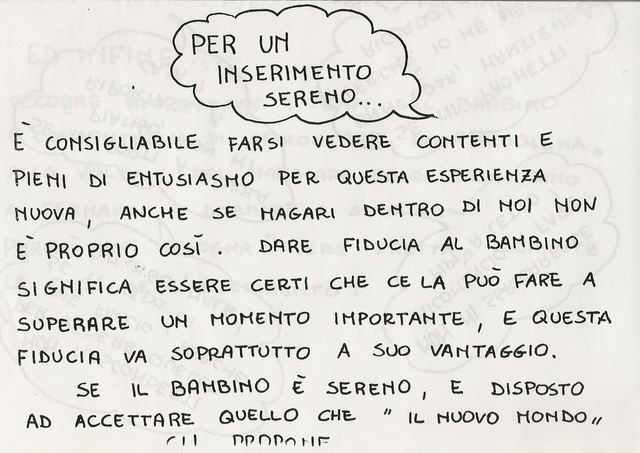 PER UN
INSERIMENTO
SERENO...
È CONSIGLIABILE FARSI VEDERE CONTENTI E
PIENI DI ENTUSIASMO PER QUESTA ESPERIENZA
NUOVA, ANCHE SE MAGARI DENTRO DI NOI NON
È PROPRIO COSÌ. DARE FIDUCIA AL BAMBINO
SIGNIFICA ESSERE CERTI CHE CE LA PUÒ FARE A
SUPERARE UN MOMENTO IMPORTANTE, E QUESTA
FIDUCIA VA SOPRATTUTTO A SUO VANTAGGIO.
SE IL BAMBINO È SERENO, E DISPOSTO
AD ACCETTARE QUELLO CHE " IL NUOVO MONDO "
GLI PROPONE